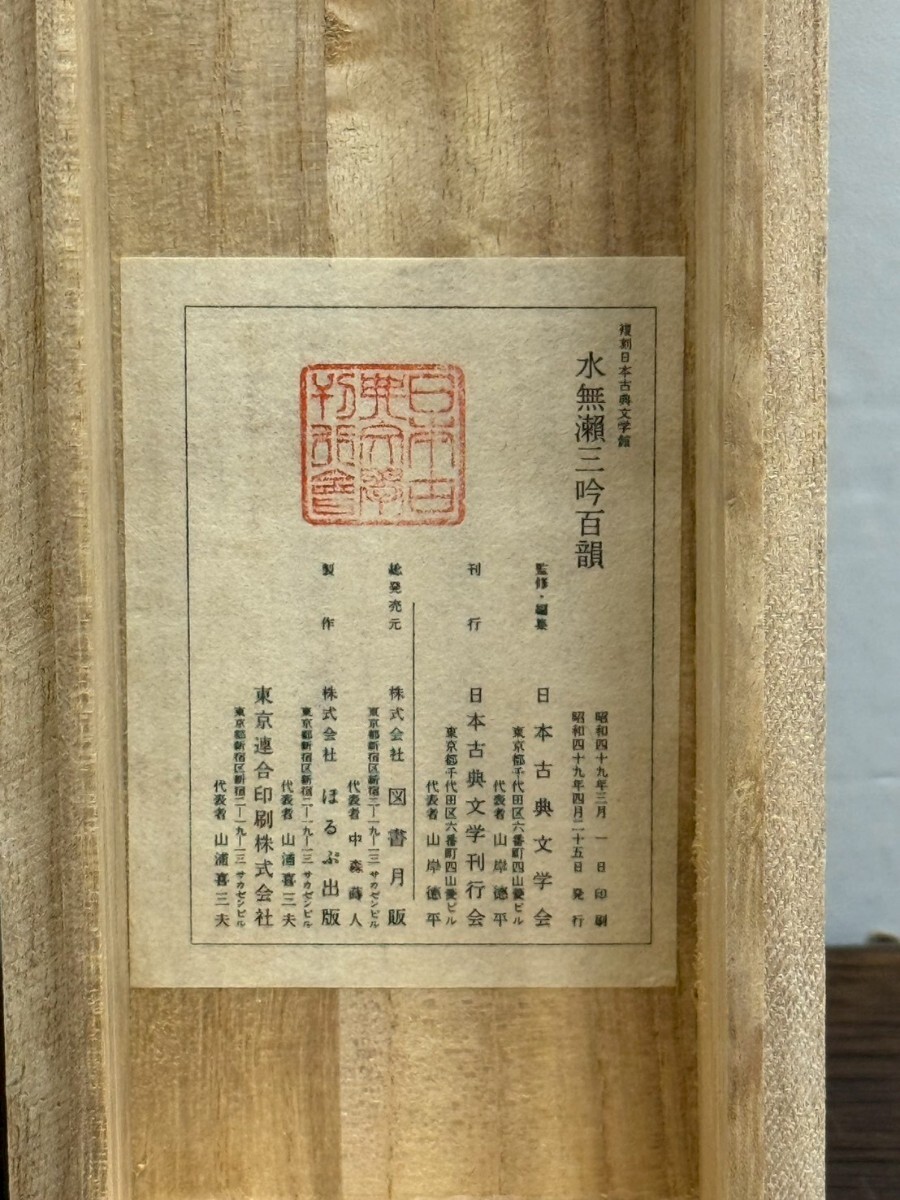 複刻日本古典文学館
水無瀬三吟百韻
昭和四十九年三月一日印刷
昭和四十九年四月二十五日発行
監修・編集 日本古典文学会
東京都千代田区六番町四山愛ビル
代表者 山岸徳平
刊行 日本古典文学刊行会
東京都千代田区六番町四山愛ビル
代表者 山岸徳平
総発売元 株式会社 図書月販
東京都新宿区新宿二―一九―一三サカゼンビル
代表者 中森蒔人
製作 株式会社 ほるぷ出版
東京都新宿区新宿二―一九―一三サカゼンビル
代表者 山浦喜三夫
東京連合印刷株式会社
東京都新宿区新宿二―一九―一三サカゼンビル
代表者 山浦喜三夫
日本古
典文學
刊行會